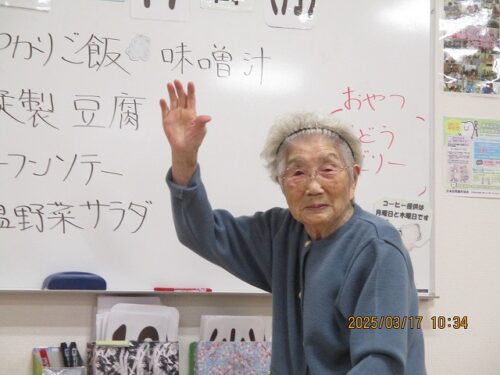 かりご飯 味噌汁
製 豆腐
ーフンソテー
温野菜サラダ
おやつ
どう
ゼリー
コーヒー提供は
月曜日と木曜日です
2025/03/17 10:34